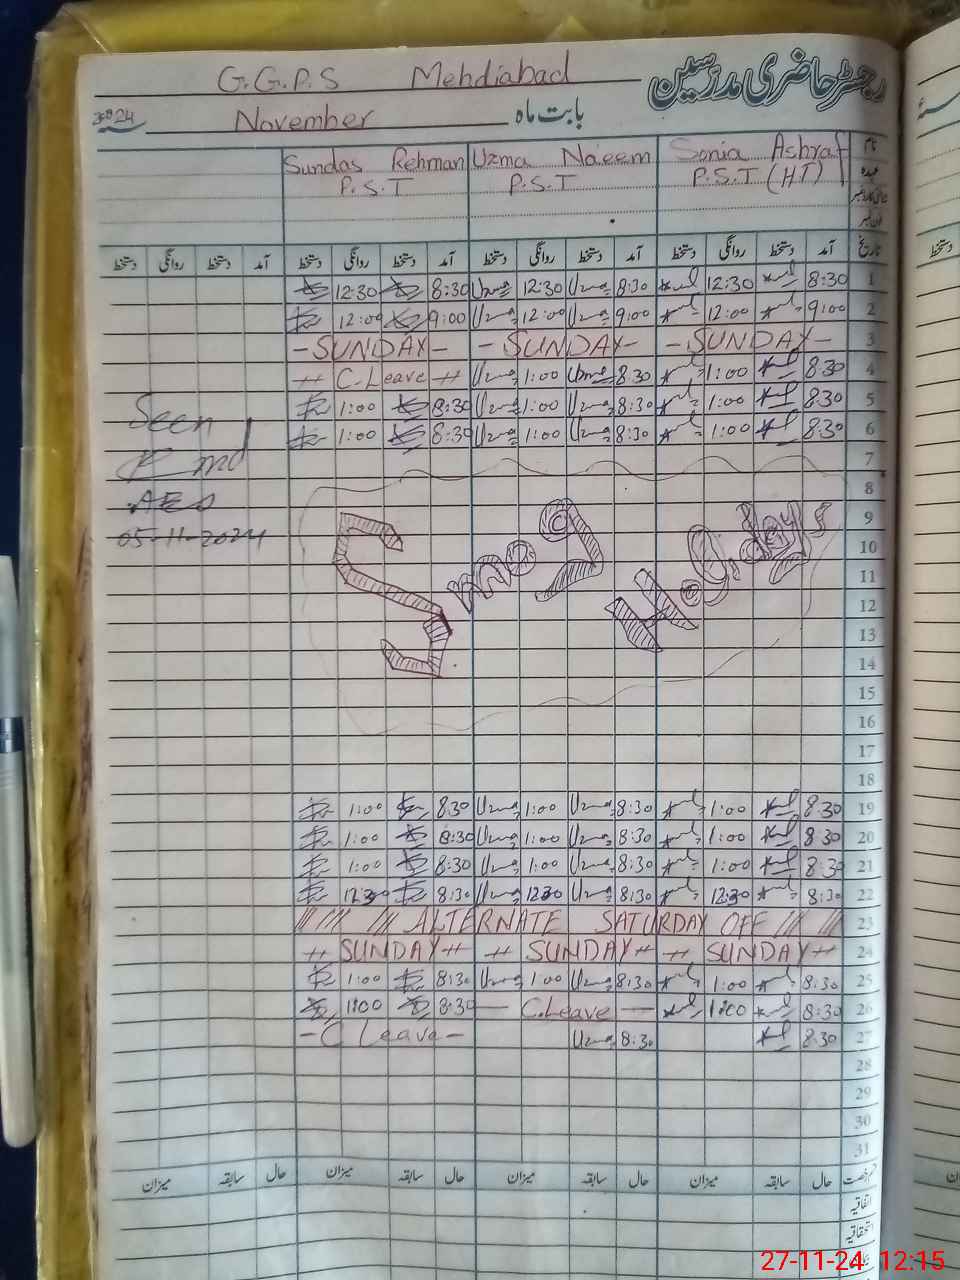 G.G.P.S Mehdiabad رجسٹر حاضری مدرسین
2024 سنہ November بابت ماہ
Sundas Rehman Uzma Naeem Sonia Ashraf نام
P.S.T P.S.T P.S.T (HT) عہدہ
دستخط روانگی دستخط آمد دستخط روانگی دستخط آمد دستخط روانگی دستخط آمد دستخط روانگی دستخط آمد تاریخ
12:30 8:30 Uzma 12:30 Uzma 8:30 12:30 8:30 1
12:00 9:00 Uzma 12:00 Uzma 9:00 12:00 9:00 2
-SUNDAY- -SUNDAY- -SUNDAY- 3
C.Leave Uzma 1:00 Uzma 8:30 1:00 8:30 4
1:00 8:30 Uzma 1:00 Uzma 8:30 1:00 8:30 5
Seen
1:00 8:30 Uzma 1:00 Uzma 8:30 1:00 8:30 6
7
8
AEO
9
05-11-2024
10
Smog Holidays
11
12
13
14
15
16
17
18
1:00 8:30 Uzma 1:00 Uzma 8:30 1:00 8:30 19
1:00 8:30 Uzma 1:00 Uzma 8:30 1:00 8:30 20
1:00 8:30 Uzma 1:00 Uzma 8:30 1:00 8:30 21
12:30 8:30 Uzma 12:30 Uzma 8:30 12:30 8:30 22
ALTERNATE SATURDAY OFF 23
SUNDAY SUNDAY SUNDAY 24
1:00 8:30 Uzma 1:00 Uzma 8:30 1:00 8:30 25
1:00 8:30 — C.Leave — 1:00 8:30 26
-C Leave- Uzma 8:30 8:30 27
28
29
30
31
میزان سابقہ حال میزان سابقہ حال میزان سابقہ حال میزان سابقہ حال
اتفاقیہ
استحقاقیہ
27-11-24 12:15